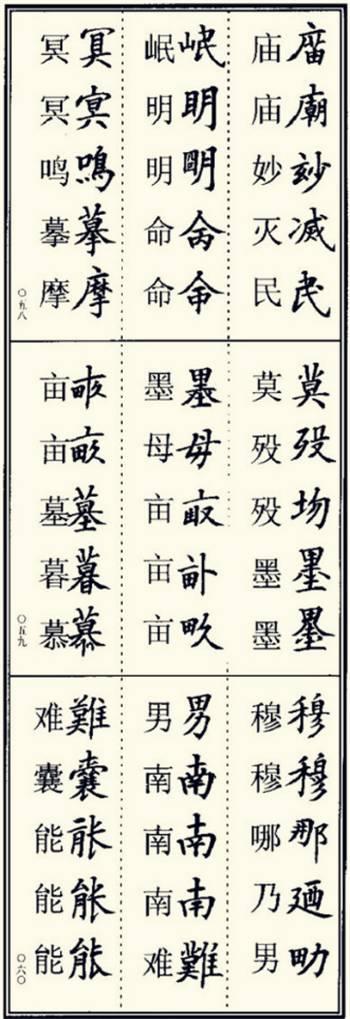 庿廟玅民
庙庙妙灭民
岷眀朙命
岷明明命命
冥鳴摹摩
冥冥鸣摹摩
〇五八
莫歿墨墨
莫殁殁墨墨
墨母
墨母亩亩亩
墓暮慕
亩亩墓暮慕
〇五九
穆穆那廼
穆穆哪乃男
男南南南難
男南南南难
難囊能
难囊能能能
〇六〇